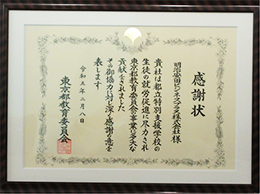 感謝状
明治安田ビジネスプラス株式会社様
貴社は都立特別支援学校の
生徒の就労促進に尽力され
東京都教育委員会事業に多大な
貢献をされました
その御協力に対し深く感謝の意を
表します
令和五年二月八日
東京都教育委員会